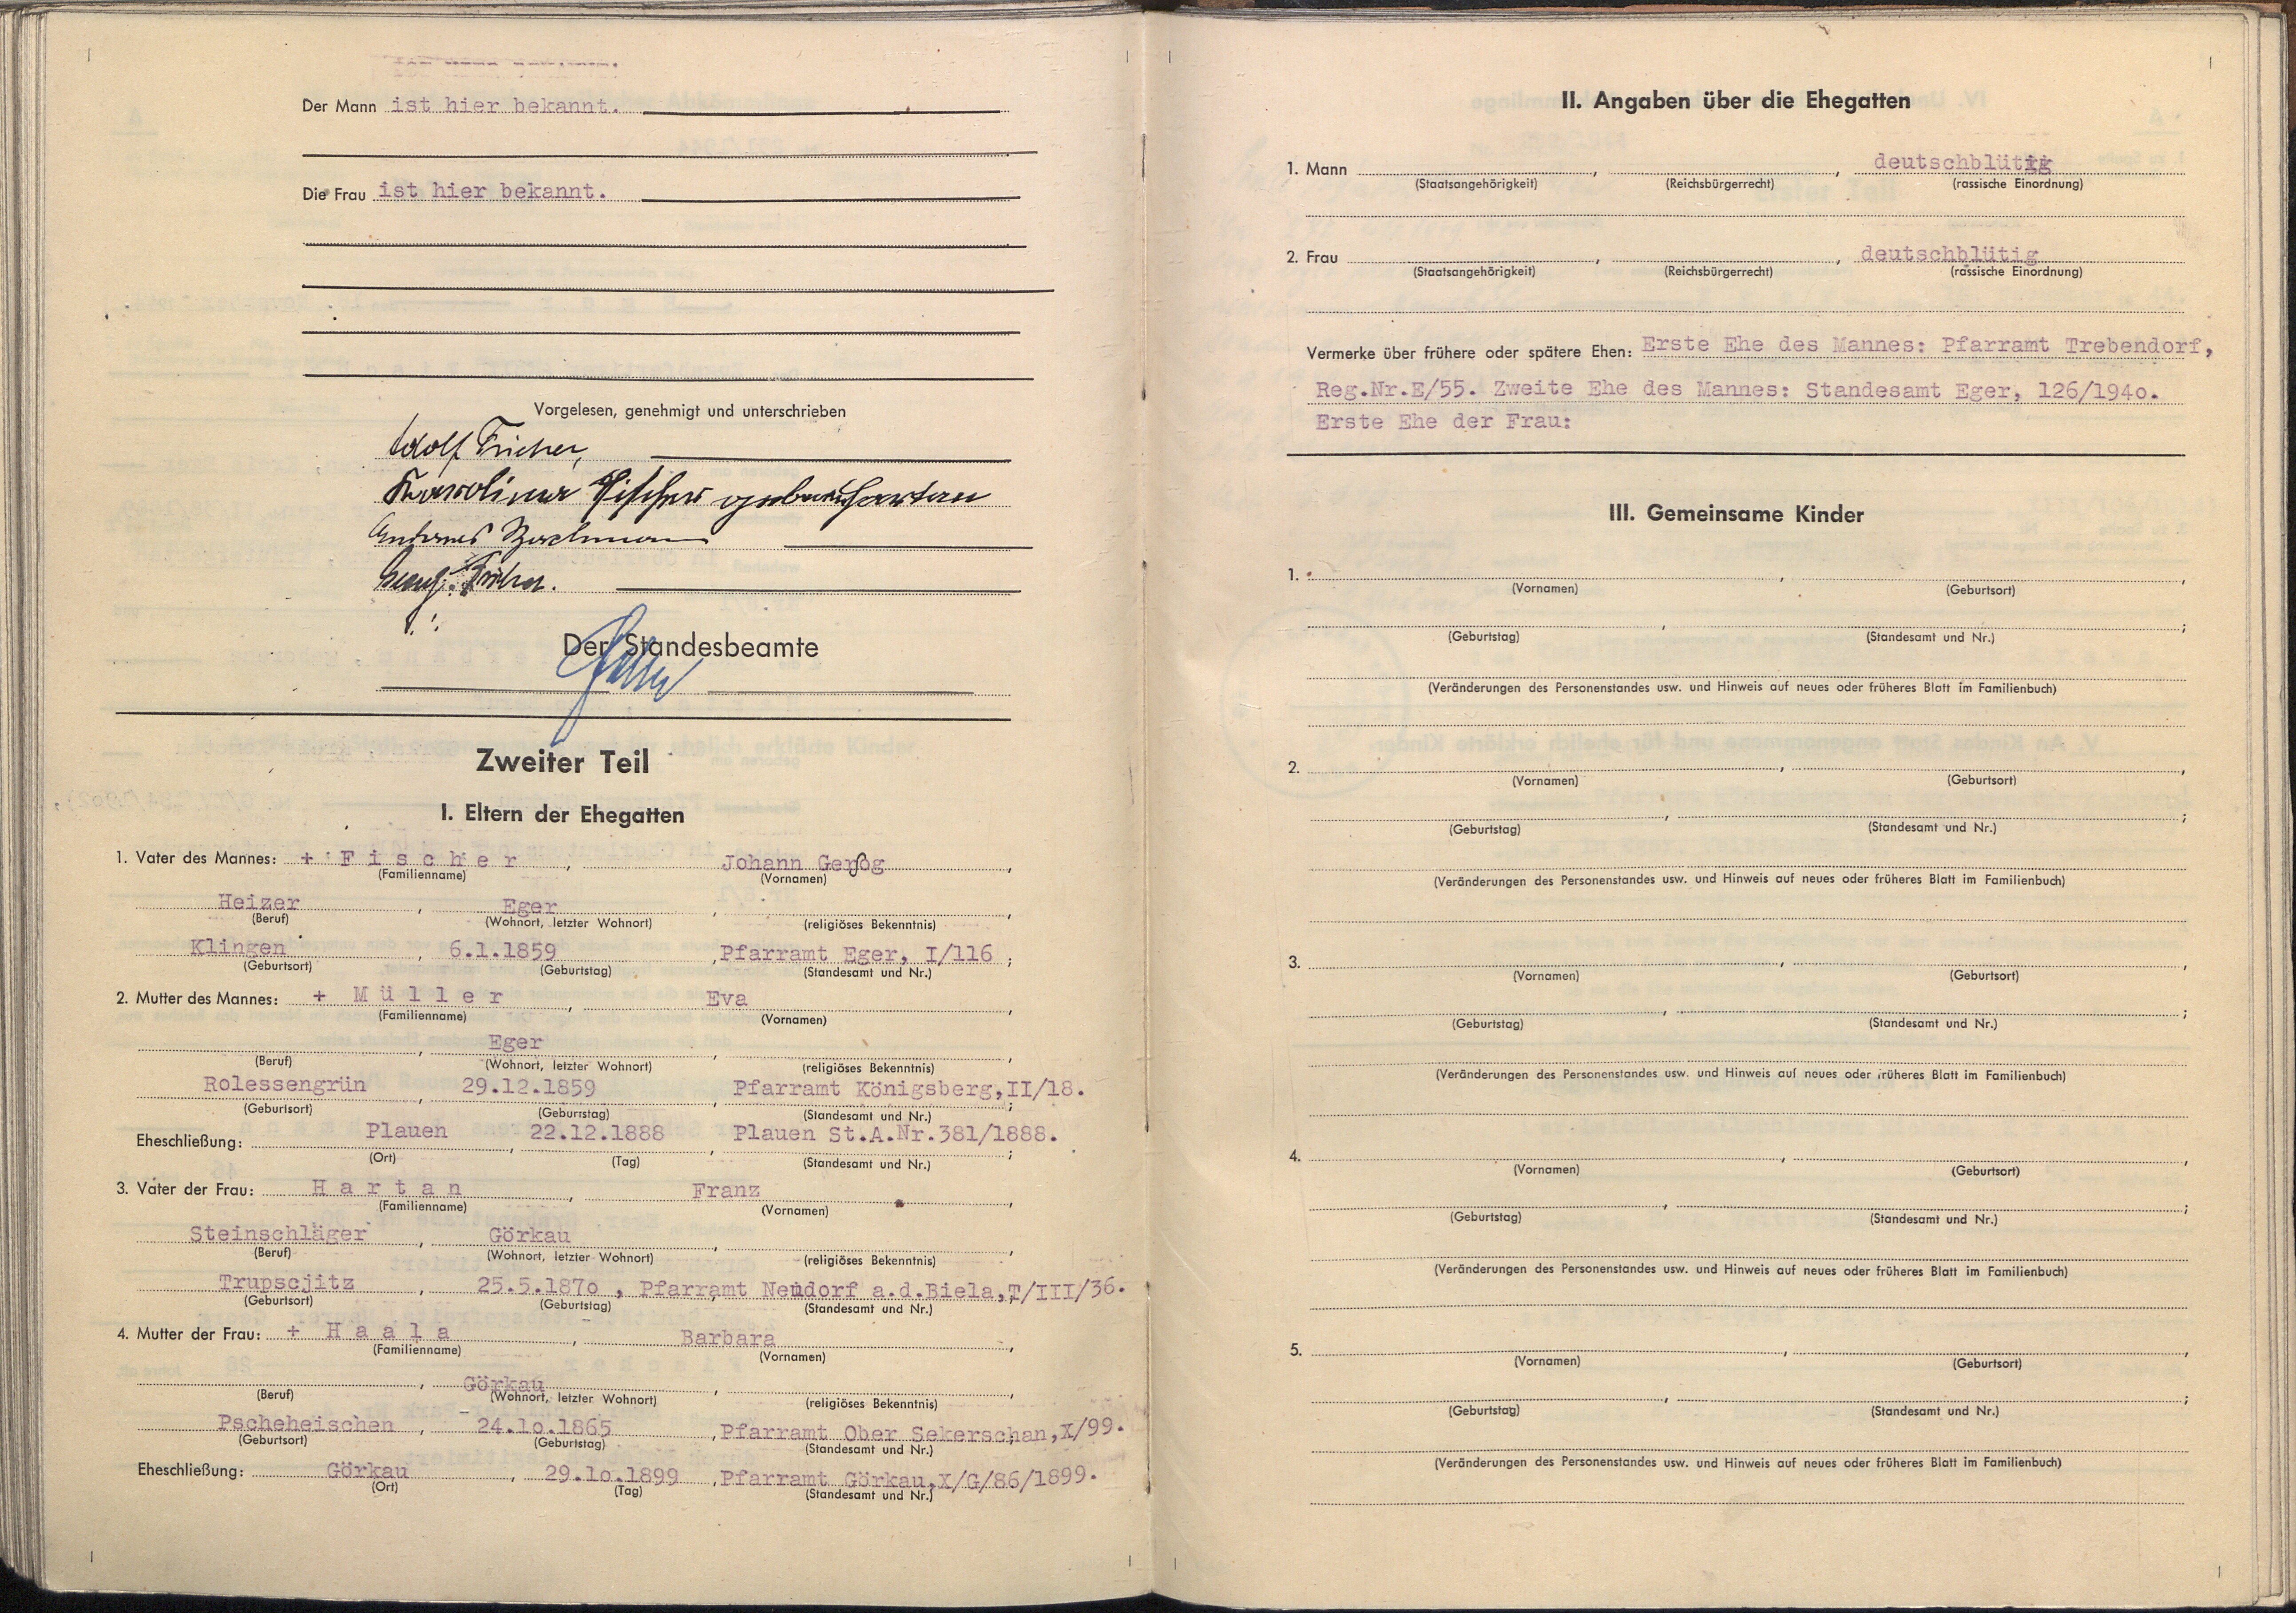 Der Mann ist hier bekannt.
Die Frau ist hier bekannt.
Vorgelesen, genehmigt und unterschrieben
Adolf Fischer,
Karolina Fischer geb. Hartan
Andreas Bachmann
Georg Fischer.
Der Standesbeamte
Zweiter Teil
I. Eltern der Ehegatten
1. Vater des Mannes: + F i s c h e r , Johann Gerog ,
(Familienname) (Vornamen)
Heizer , Eger , ,
(Beruf) (Wohnort, letzter Wohnort) (religiöses Bekenntnis)
Klingen , 6.1.1859 , Pfarramt Eger, I/116 ;
(Geburtsort) (Geburtstag) (Standesamt und Nr.)
2. Mutter des Mannes: + M ü l l e r , Eva ,
(Familienname) (Vornamen)
, Eger , ,
(Beruf) (Wohnort, letzter Wohnort) (religiöses Bekenntnis)
Rolessengrün , 29.12.1859 , Pfarramt Königsberg,II/18. ;
(Geburtsort) (Geburtstag) (Standesamt und Nr.)
Eheschließung: Plauen , 22.12.1888 , Plauen St.A.Nr.381/1888. ;
(Ort) (Tag) (Standesamt und Nr.)
3. Vater der Frau: H a r t a n , Franz ,
(Familienname) (Vornamen)
Steinschläger , Görkau , ,
(Beruf) (Wohnort, letzter Wohnort) (religiöses Bekenntnis)
Trupscjitz , 25.5.187o , Pfarramt Neudorf a.d.Biela,T/III/36.
(Geburtsort) (Geburtstag) (Standesamt und Nr.)
4. Mutter der Frau: + H a a l a , Barbara ,
(Familienname) (Vornamen)
, Görkau , ,
(Beruf) (Wohnort, letzter Wohnort) (religiöses Bekenntnis)
Pscheheischen , 24.1o.1865 , Pfarramt Ober Sekerschan,X/99.
(Geburtsort) (Geburtstag) (Standesamt und Nr.)
Eheschließung: Görkau , 29.1o.1899 , Pfarramt Görkau,X/G/86/1899.
(Ort) (Tag) (Standesamt und Nr.)
II. Angaben über die Ehegatten
1. Mann , , deutschblütig
(Staatsangehörigkeit) (Reichsbürgerrecht) (rassische Einordnung)
2. Frau , , deutschblütig
(Staatsangehörigkeit) (Reichsbürgerrecht) (rassische Einordnung)
Vermerke über frühere oder spätere Ehen: Erste Ehe des Mannes: Pfarramt Trebendorf,
Reg.Nr.E/55. Zweite Ehe des Mannes: Standesamt Eger, 126/194o.
Erste Ehe der Frau:
III. Gemeinsame Kinder
1. , ,
(Vornamen) (Geburtsort)
, ;
(Geburtstag) (Standesamt und Nr.)
(Veränderungen des Personenstandes usw. und Hinweis auf neues oder früheres Blatt im Familienbuch)
2. , ,
(Vornamen) (Geburtsort)
, ;
(Geburtstag) (Standesamt und Nr.)
(Veränderungen des Personenstandes usw. und Hinweis auf neues oder früheres Blatt im Familienbuch)
3. , ,
(Vornamen) (Geburtsort)
, ;
(Geburtstag) (Standesamt und Nr.)
(Veränderungen des Personenstandes usw. und Hinweis auf neues oder früheres Blatt im Familienbuch)
4. , ,
(Vornamen) (Geburtsort)
, ;
(Geburtstag) (Standesamt und Nr.)
(Veränderungen des Personenstandes usw. und Hinweis auf neues oder früheres Blatt im Familienbuch)
5. , ,
(Vornamen) (Geburtsort)
, ;
(Geburtstag) (Standesamt und Nr.)
(Veränderungen des Personenstandes usw. und Hinweis auf neues oder früheres Blatt im Familienbuch)